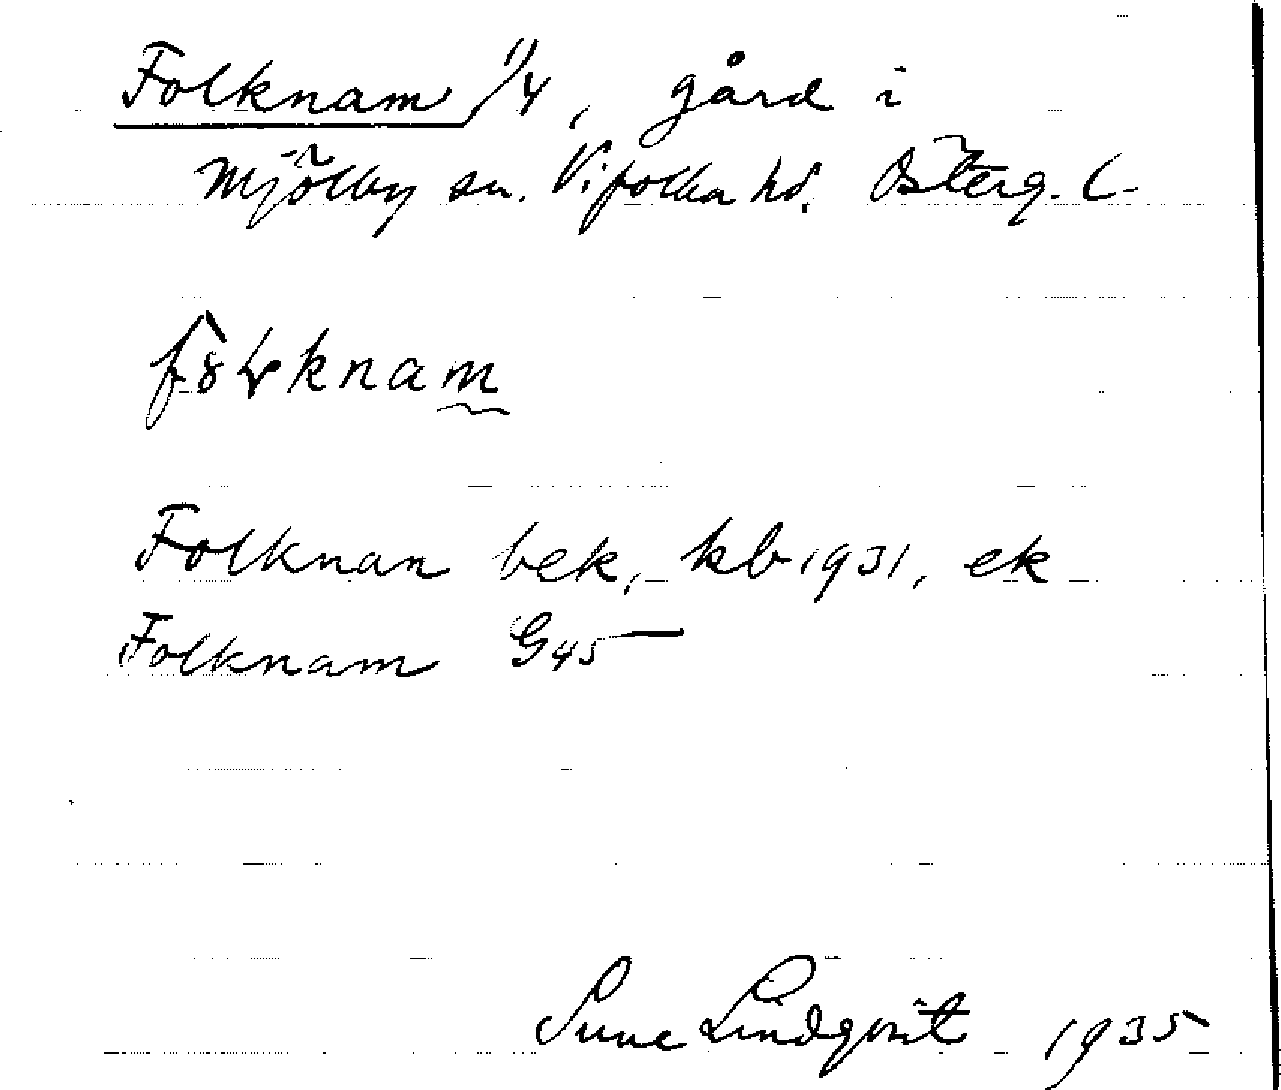 Folknam 1/4, gård i
Mjölby sn. Vifolka hd. Österg. l.
Folknam bek, kb 1931, ek
Folknam G45
Sune Lindqvist 1935